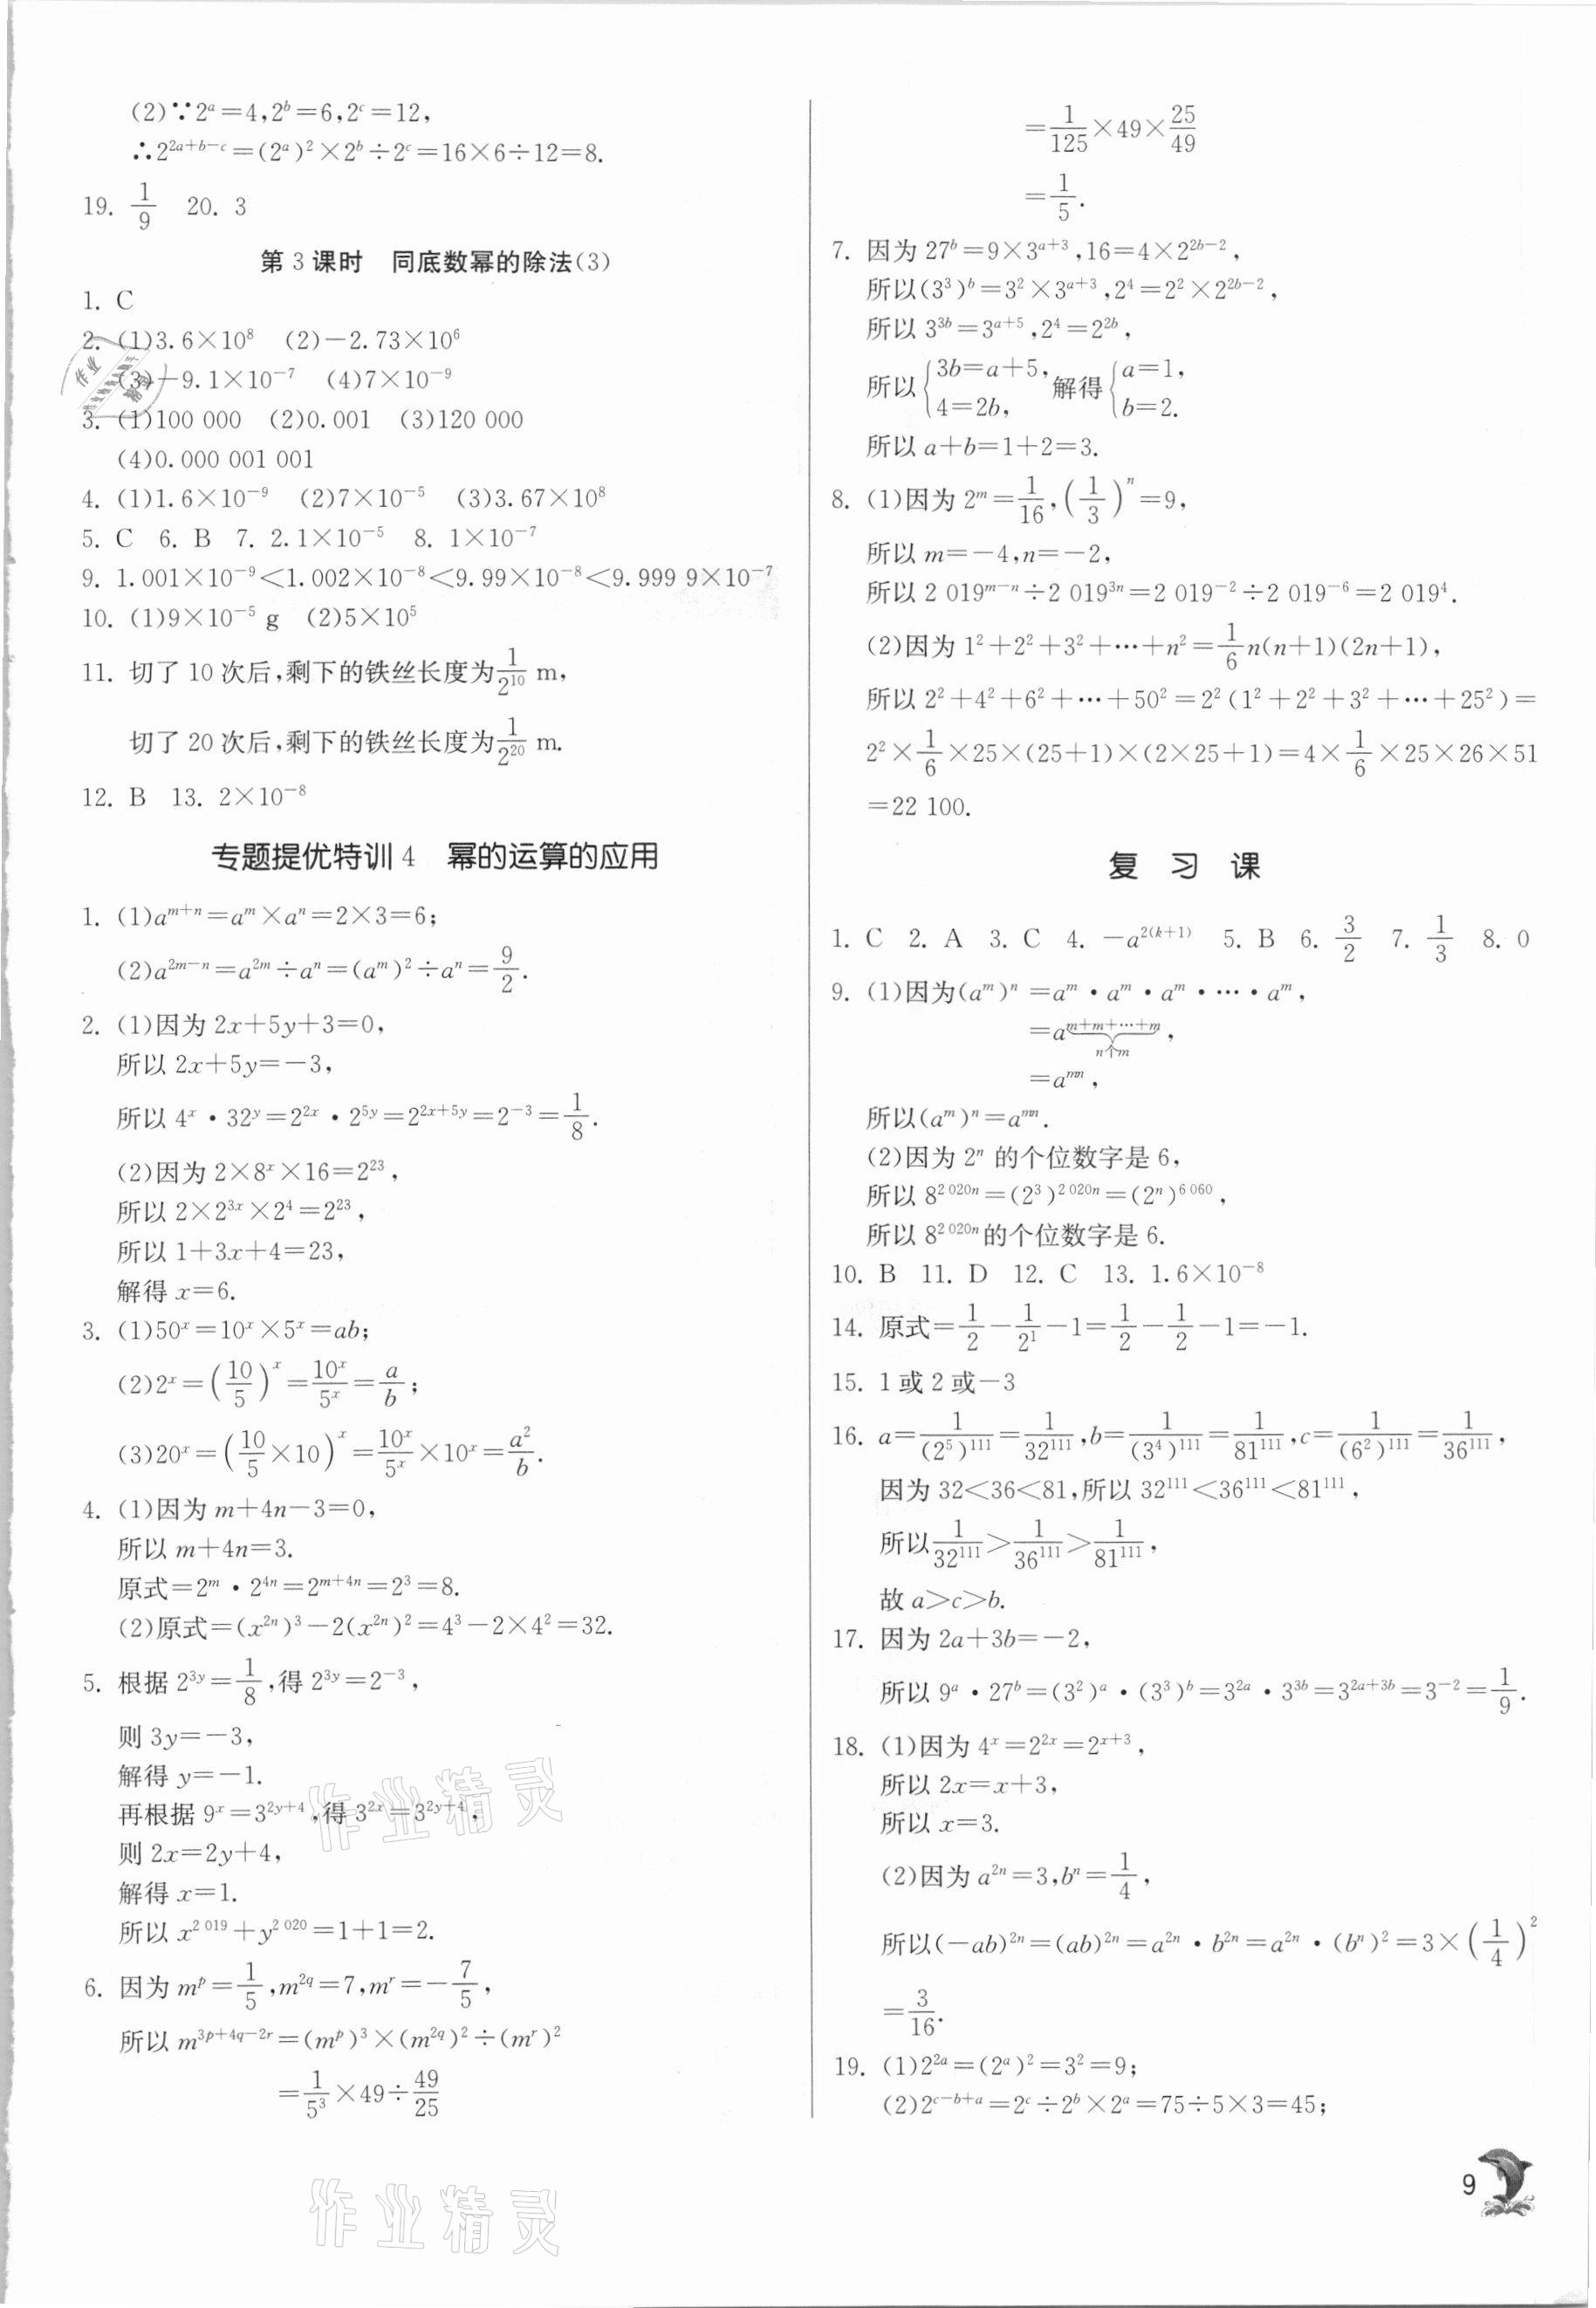 (2)∵2ᵃ=4,2ᵇ=6,2ᶜ=12,
∴2²ᵃ⁺ᵇ⁻ᶜ=(2ᵃ)²×2ᵇ÷2ᶜ=16×6÷12=8.
19. 1/9 20. 3
第 3 课时 同底数幂的除法(3)
1. C
2. (1)3.6×10⁸ (2)-2.73×10⁶
(3)-9.1×10⁻⁷ (4)7×10⁻⁹
3. (1)100 000 (2)0.001 (3)120 000
(4)0.000 001 001
4. (1)1.6×10⁻⁹ (2)7×10⁻⁵ (3)3.67×10⁸
5. C 6. B 7. 2.1×10⁻⁵ 8. 1×10⁻⁷
9. 1.001×10⁻⁹<1.002×10⁻⁸<9.99×10⁻⁸<9.999 9×10⁻⁷
10. (1)9×10⁻⁵ g (2)5×10⁵
11. 切了 10 次后,剩下的铁丝长度为1/2¹⁰ m,
切了 20 次后,剩下的铁丝长度为1/2²⁰ m.
12. B 13. 2×10⁻⁸
专题提优特训 4 幂的运算的应用
1. (1)aᵐ⁺ⁿ=aᵐ×aⁿ=2×3=6;
(2)a²ᵐ⁻ⁿ=a²ᵐ÷aⁿ=(aᵐ)²÷aⁿ=9/2.
2. (1)因为 2x+5y+3=0,
所以 2x+5y=-3,
所以 4ˣ·32ʸ=2²ˣ·2⁵ʸ=2²ˣ⁺⁵ʸ=2⁻³=1/8.
(2)因为 2×8ˣ×16=2²³,
所以 2×2³ˣ×2⁴=2²³,
所以 1+3x+4=23,
解得 x=6.
3. (1)50ˣ=10ˣ×5ˣ=ab;
(2)2ˣ=(10/5)ˣ=10ˣ/5ˣ=a/b;
(3)20ˣ=(10/5×10)ˣ=10ˣ/5ˣ×10ˣ=a²/b.
4. (1)因为 m+4n-3=0,
所以 m+4n=3.
原式=2ᵐ·2⁴ⁿ=2ᵐ⁺⁴ⁿ=2³=8.
(2)原式=(x²ⁿ)³-2(x²ⁿ)²=4³-2×4²=32.
5. 根据 2³ʸ=1/8,得 2³ʸ=2⁻³,
则 3y=-3,
解得 y=-1.
再根据 9ˣ=3²ʸ⁺⁴,得 3²ˣ=3²ʸ⁺⁴,
则 2x=2y+4,
解得 x=1.
所以 x²⁰¹⁹+y²⁰²⁰=1+1=2.
6. 因为 mᵖ=1/5,m^(2q)=7,mʳ=-7/5,
所以 m^(3p+4q-2r)=(mᵖ)³×(m^(2q))²÷(mʳ)²
=1/5³×49÷49/25
=1/125×49×25/49
=1/5.
7. 因为 27ᵇ=9×3ᵃ⁺³,16=4×2²ᵇ⁻²,
所以(3³)ᵇ=3²×3ᵃ⁺³,2⁴=2²×2²ᵇ⁻²,
所以 3³ᵇ=3ᵃ⁺⁵,2⁴=2²ᵇ,
所以{3b=a+5, 4=2b, 解得{a=1, b=2.
所以 a+b=1+2=3.
8. (1)因为 2ᵐ=1/16,(1/3)ⁿ=9,
所以 m=-4,n=-2,
所以 2 019ᵐ⁻ⁿ÷2 019³ⁿ=2 019⁻²÷2 019⁻⁶=2 019⁴.
(2)因为 1²+2²+3²+…+n²=1/6n(n+1)(2n+1),
所以 2²+4²+6²+…+50²=2²(1²+2²+3²+…+25²)=
2²×1/6×25×(25+1)×(2×25+1)=4×1/6×25×26×51
=22 100.
复 习 课
1. C 2. A 3. C 4. -a²⁽ᵏ⁺¹⁾ 5. B 6. 3/2 7. 1/3 8. 0
9. (1)因为(aᵐ)ⁿ=aᵐ·aᵐ·aᵐ·…·aᵐ,
=aᵐ⁺ᵐ⁺…⁺ᵐ,
n个m
=aᵐⁿ,
所以(aᵐ)ⁿ=aᵐⁿ.
(2)因为 2ⁿ 的个位数字是 6,
所以 8²⁰²⁰ⁿ=(2³)²⁰²⁰ⁿ=(2ⁿ)⁶⁰⁶⁰,
所以 8²⁰²⁰ⁿ的个位数字是 6.
10. B 11. D 12. C 13. 1.6×10⁻⁸
14. 原式=1/2-1/2¹-1=1/2-1/2-1=-1.
15. 1 或 2 或-3
16. a=1/(2⁵)¹¹¹=1/32¹¹¹,b=1/(3⁴)¹¹¹=1/81¹¹¹,c=1/(6²)¹¹¹=1/36¹¹¹,
因为 32<36<81,所以 32¹¹¹<36¹¹¹<81¹¹¹,
所以1/32¹¹¹>1/36¹¹¹>1/81¹¹¹,
故 a>c>b.
17. 因为 2a+3b=-2,
所以 9ᵃ·27ᵇ=(3²)ᵃ·(3³)ᵇ=3²ᵃ·3³ᵇ=3²ᵃ⁺³ᵇ=3⁻²=1/9.
18. (1)因为 4ˣ=2²ˣ=2ˣ⁺³,
所以 2x=x+3,
所以 x=3.
(2)因为 a²ⁿ=3,bⁿ=1/4,
所以(-ab)²ⁿ=(ab)²ⁿ=a²ⁿ·b²ⁿ=a²ⁿ·(bⁿ)²=3×(1/4)²
=3/16.
19. (1)2²ᵃ=(2ᵃ)²=3²=9;
(2)2ᶜ⁻ᵇ⁺ᵃ=2ᶜ÷2ᵇ×2ᵃ=75÷5×3=45;
作业精灵
作业精灵
9